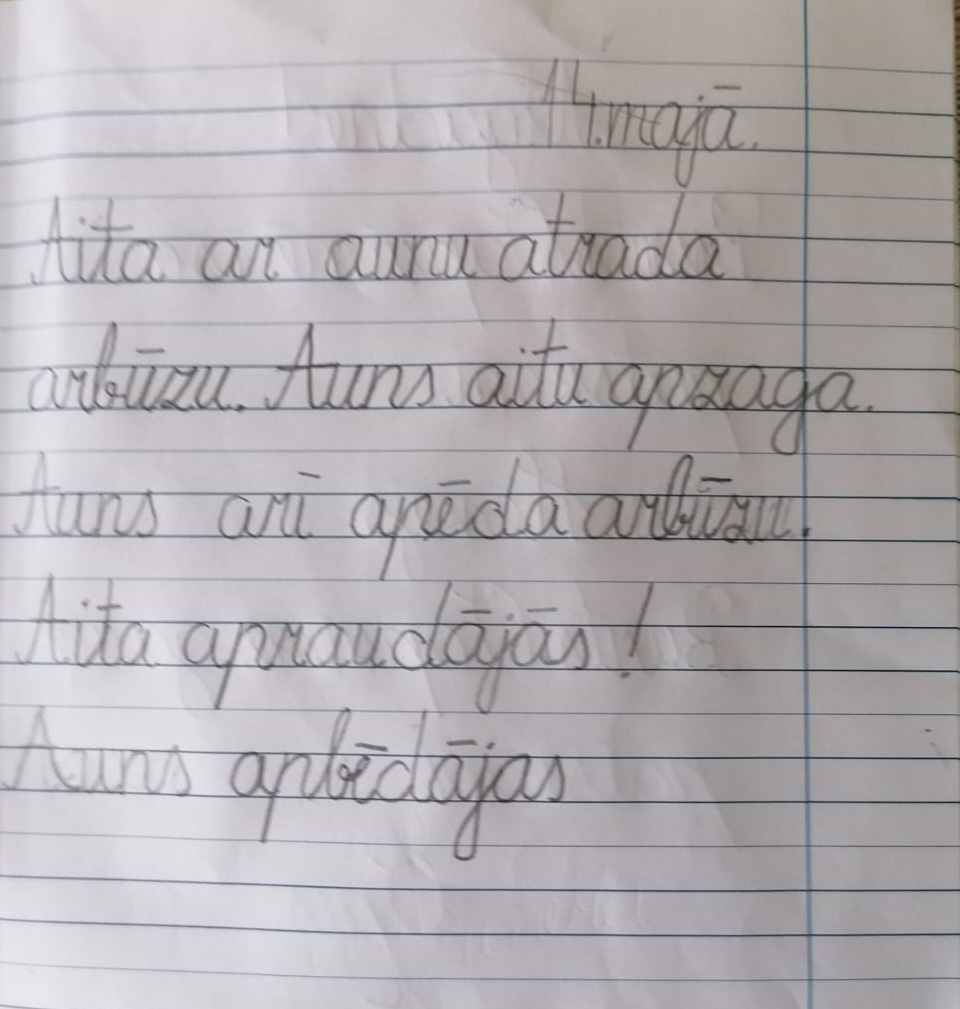 14.majā.
Aita ar aunu atrada
arbūzu. Auns aitu apzaga.
Auns arī apēda arbūzu.
Aita apraudājās!
Auns apbēdājas